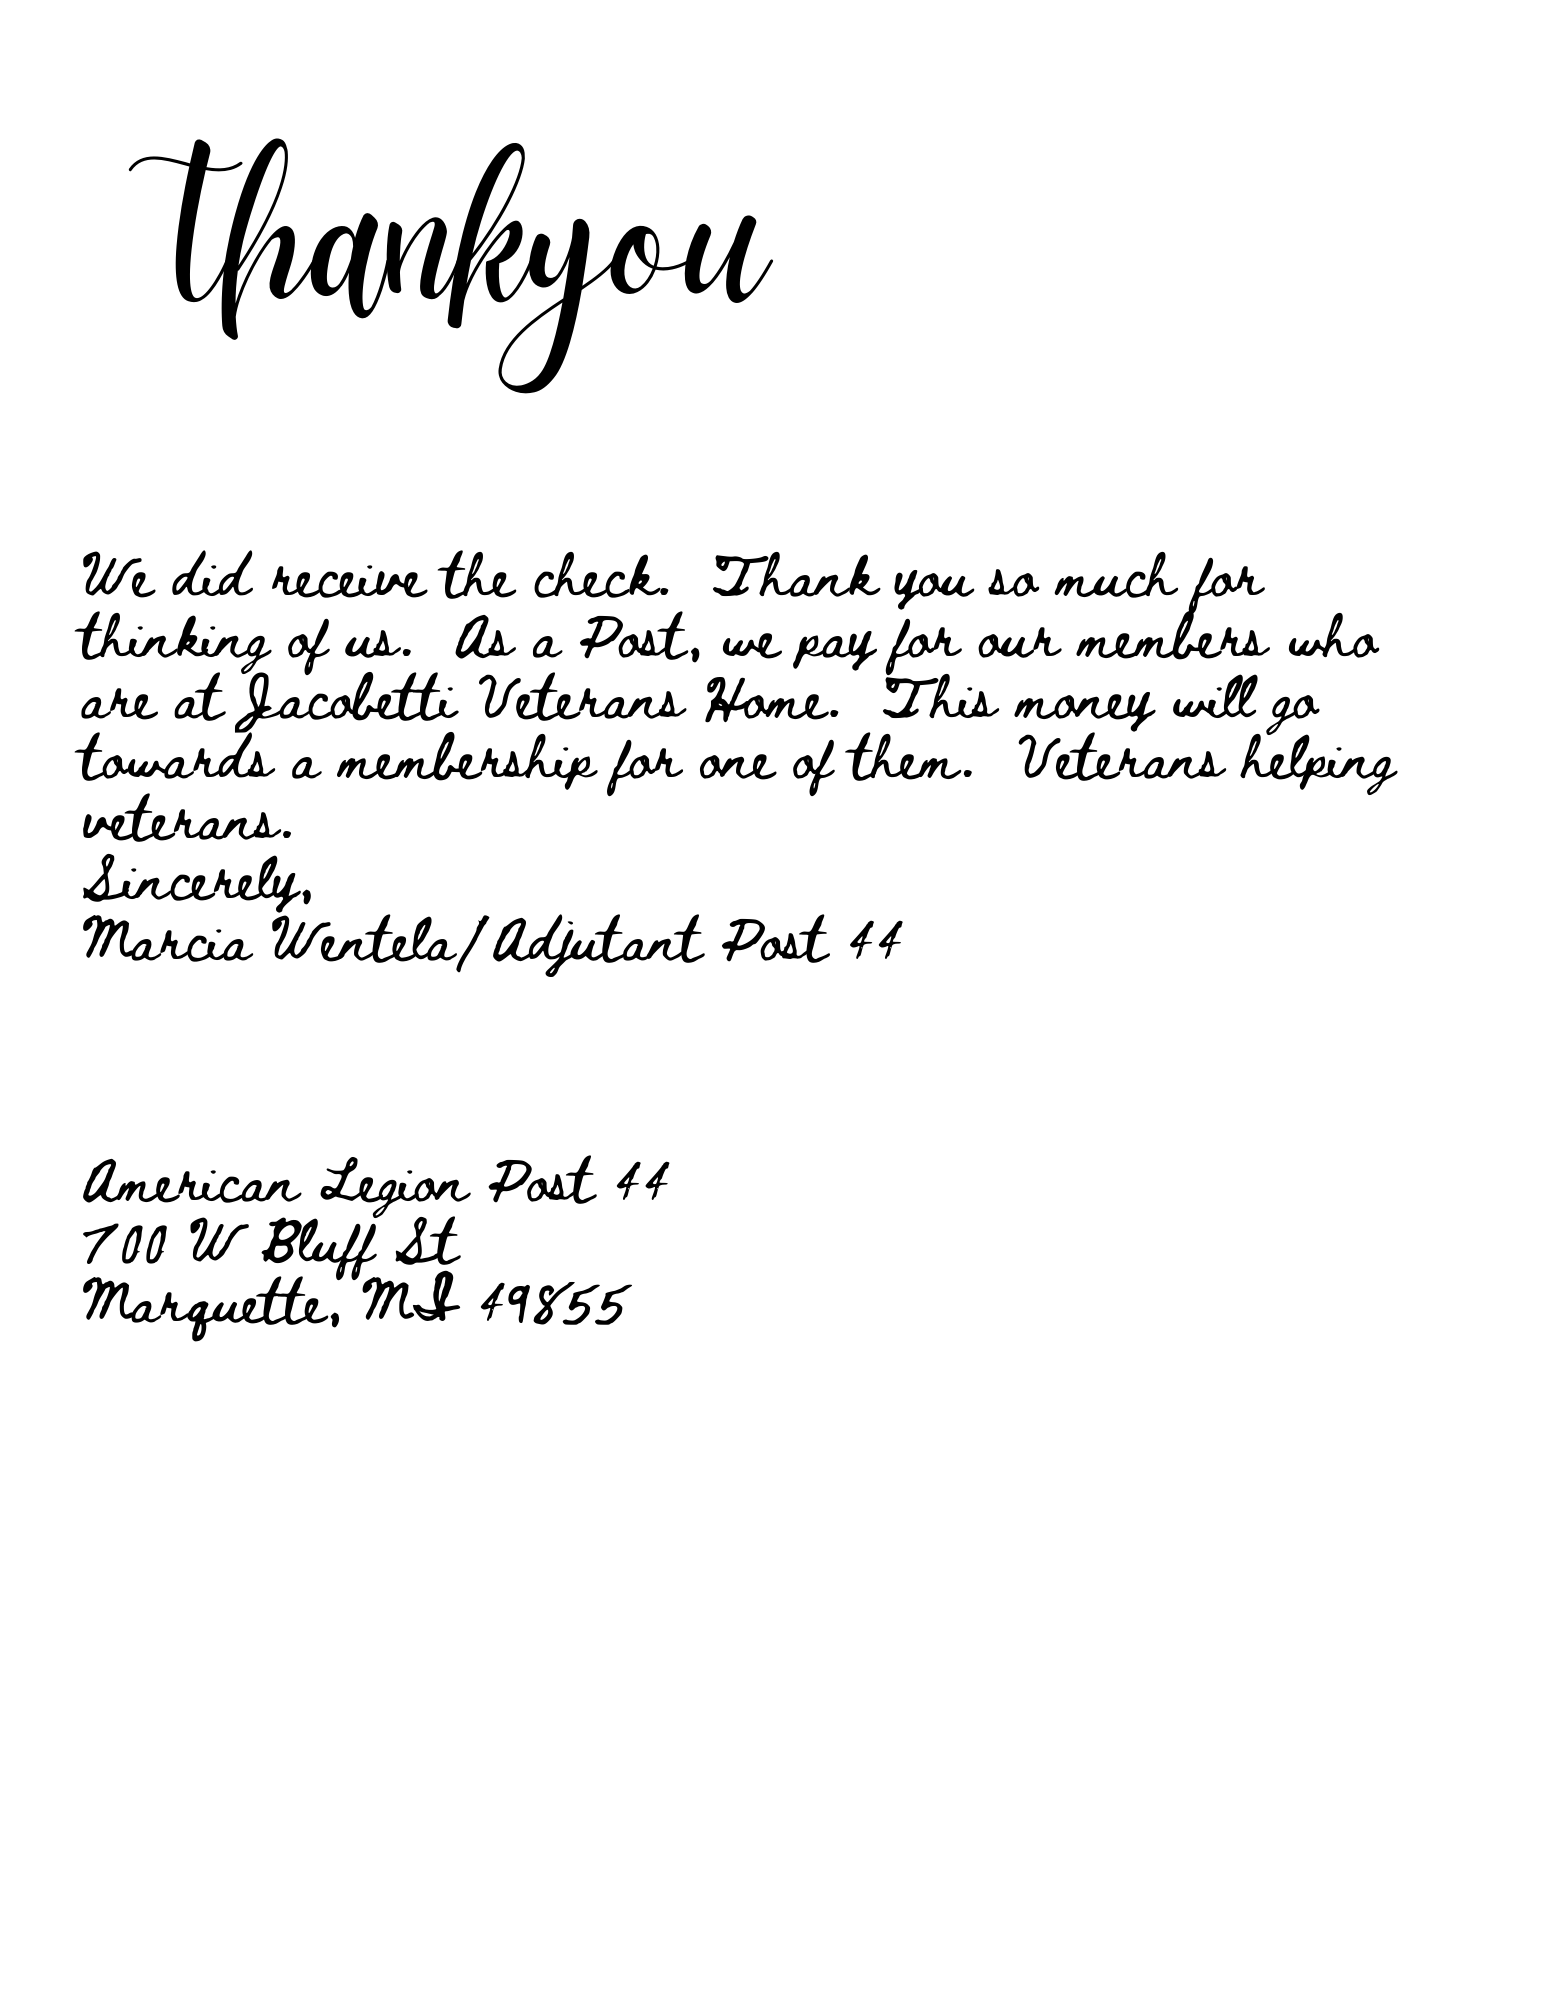 thankyou
We did receive the check.  Thank you so much for
thinking of us.  As a Post, we pay for our members who
are at Jacobetti Veterans Home.  This money will go
towards a membership for one of them.  Veterans helping
veterans.
Sincerely,
Marcia Wentela/Adjutant Post 44
American Legion Post 44
700 W Bluff St
Marquette, MI 49855